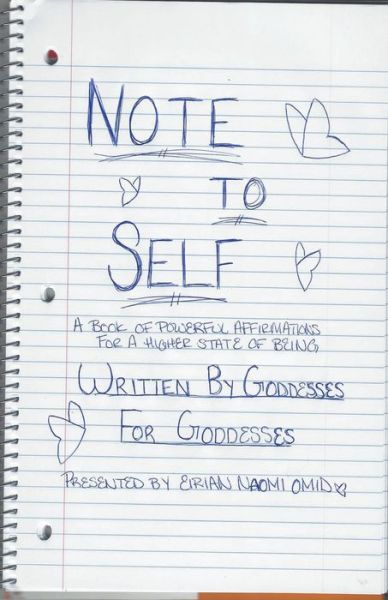 NOTE
TO
SELF
A BOOK OF POWERFUL AFFIRMATIONS
FOR A HIGHER STATE OF BEING,
WRITTEN BY GODDESSES
FOR GODDESSES
PRESENTED BY EIRIAN NAOMI OMID